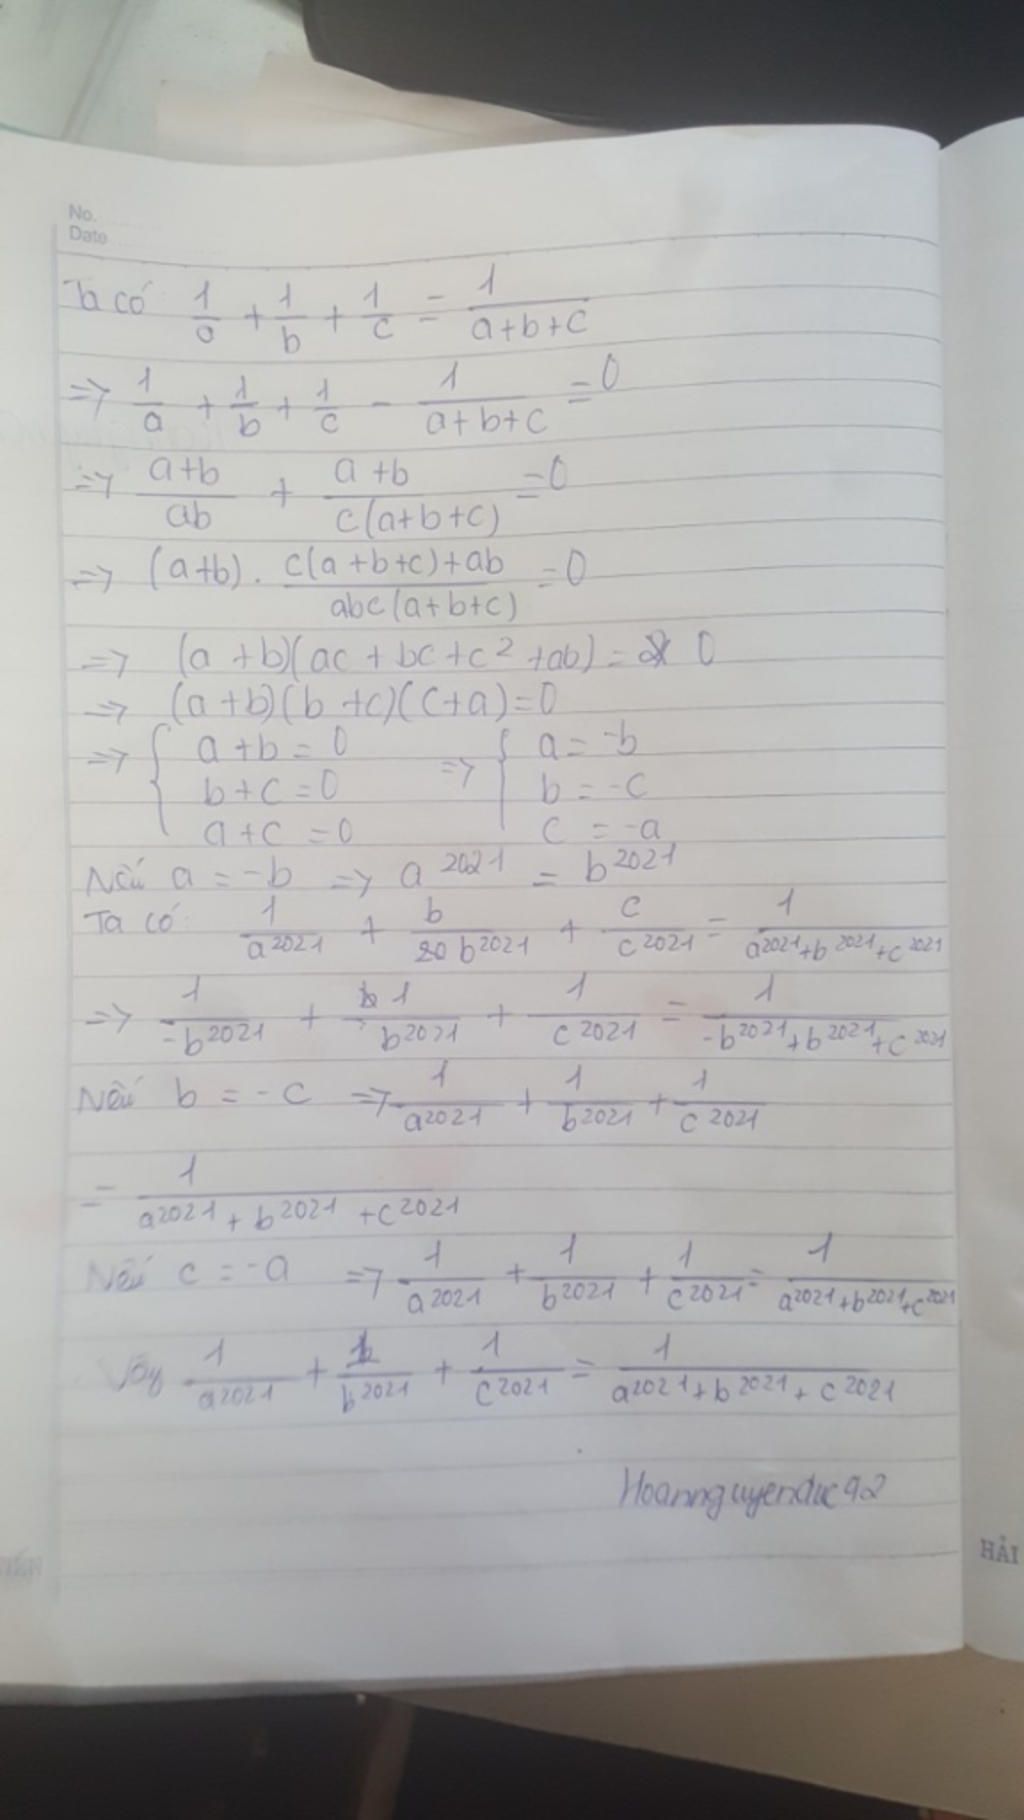 No.
Date
Ta có 1/a + 1/b + 1/c = 1/(a+b+c)
=> 1/a + 1/b + 1/c - 1/(a+b+c) = 0
=> (a+b)/(ab) + (a+b)/(c(a+b+c)) = 0
=> (a+b) . (c(a+b+c)+ab)/(abc(a+b+c)) = 0
=> (a+b)(ac+bc+c²+ab) = 0
=> (a+b)(b+c)(c+a)=0
=> { a+b=0 => { a=-b
b+c=0 b=-c
a+c=0 c=-a
Nếu a=-b => a²⁰²¹ = b²⁰²¹
Ta có: 1/a²⁰²¹ + b/b²⁰²¹ + c/c²⁰²¹ = 1/(a²⁰²¹+b²⁰²¹+c²⁰²¹)
=> 1/-b²⁰²¹ + 1/b²⁰²¹ + 1/c²⁰²¹ = 1/(-b²⁰²¹+b²⁰²¹+c²⁰²¹)
Nếu b=-c => 1/a²⁰²¹ + 1/b²⁰²¹ + 1/c²⁰²¹
= 1/(a²⁰²¹+b²⁰²¹+c²⁰²¹)
Nếu c=-a => 1/a²⁰²¹ + 1/b²⁰²¹ + 1/c²⁰²¹ = 1/(a²⁰²¹+b²⁰²¹+c²⁰²¹)
Vậy 1/a²⁰²¹ + 1/b²⁰²¹ + 1/c²⁰²¹ = 1/(a²⁰²¹+b²⁰²¹+c²⁰²¹)
Hoannguyenduc92
HẢI